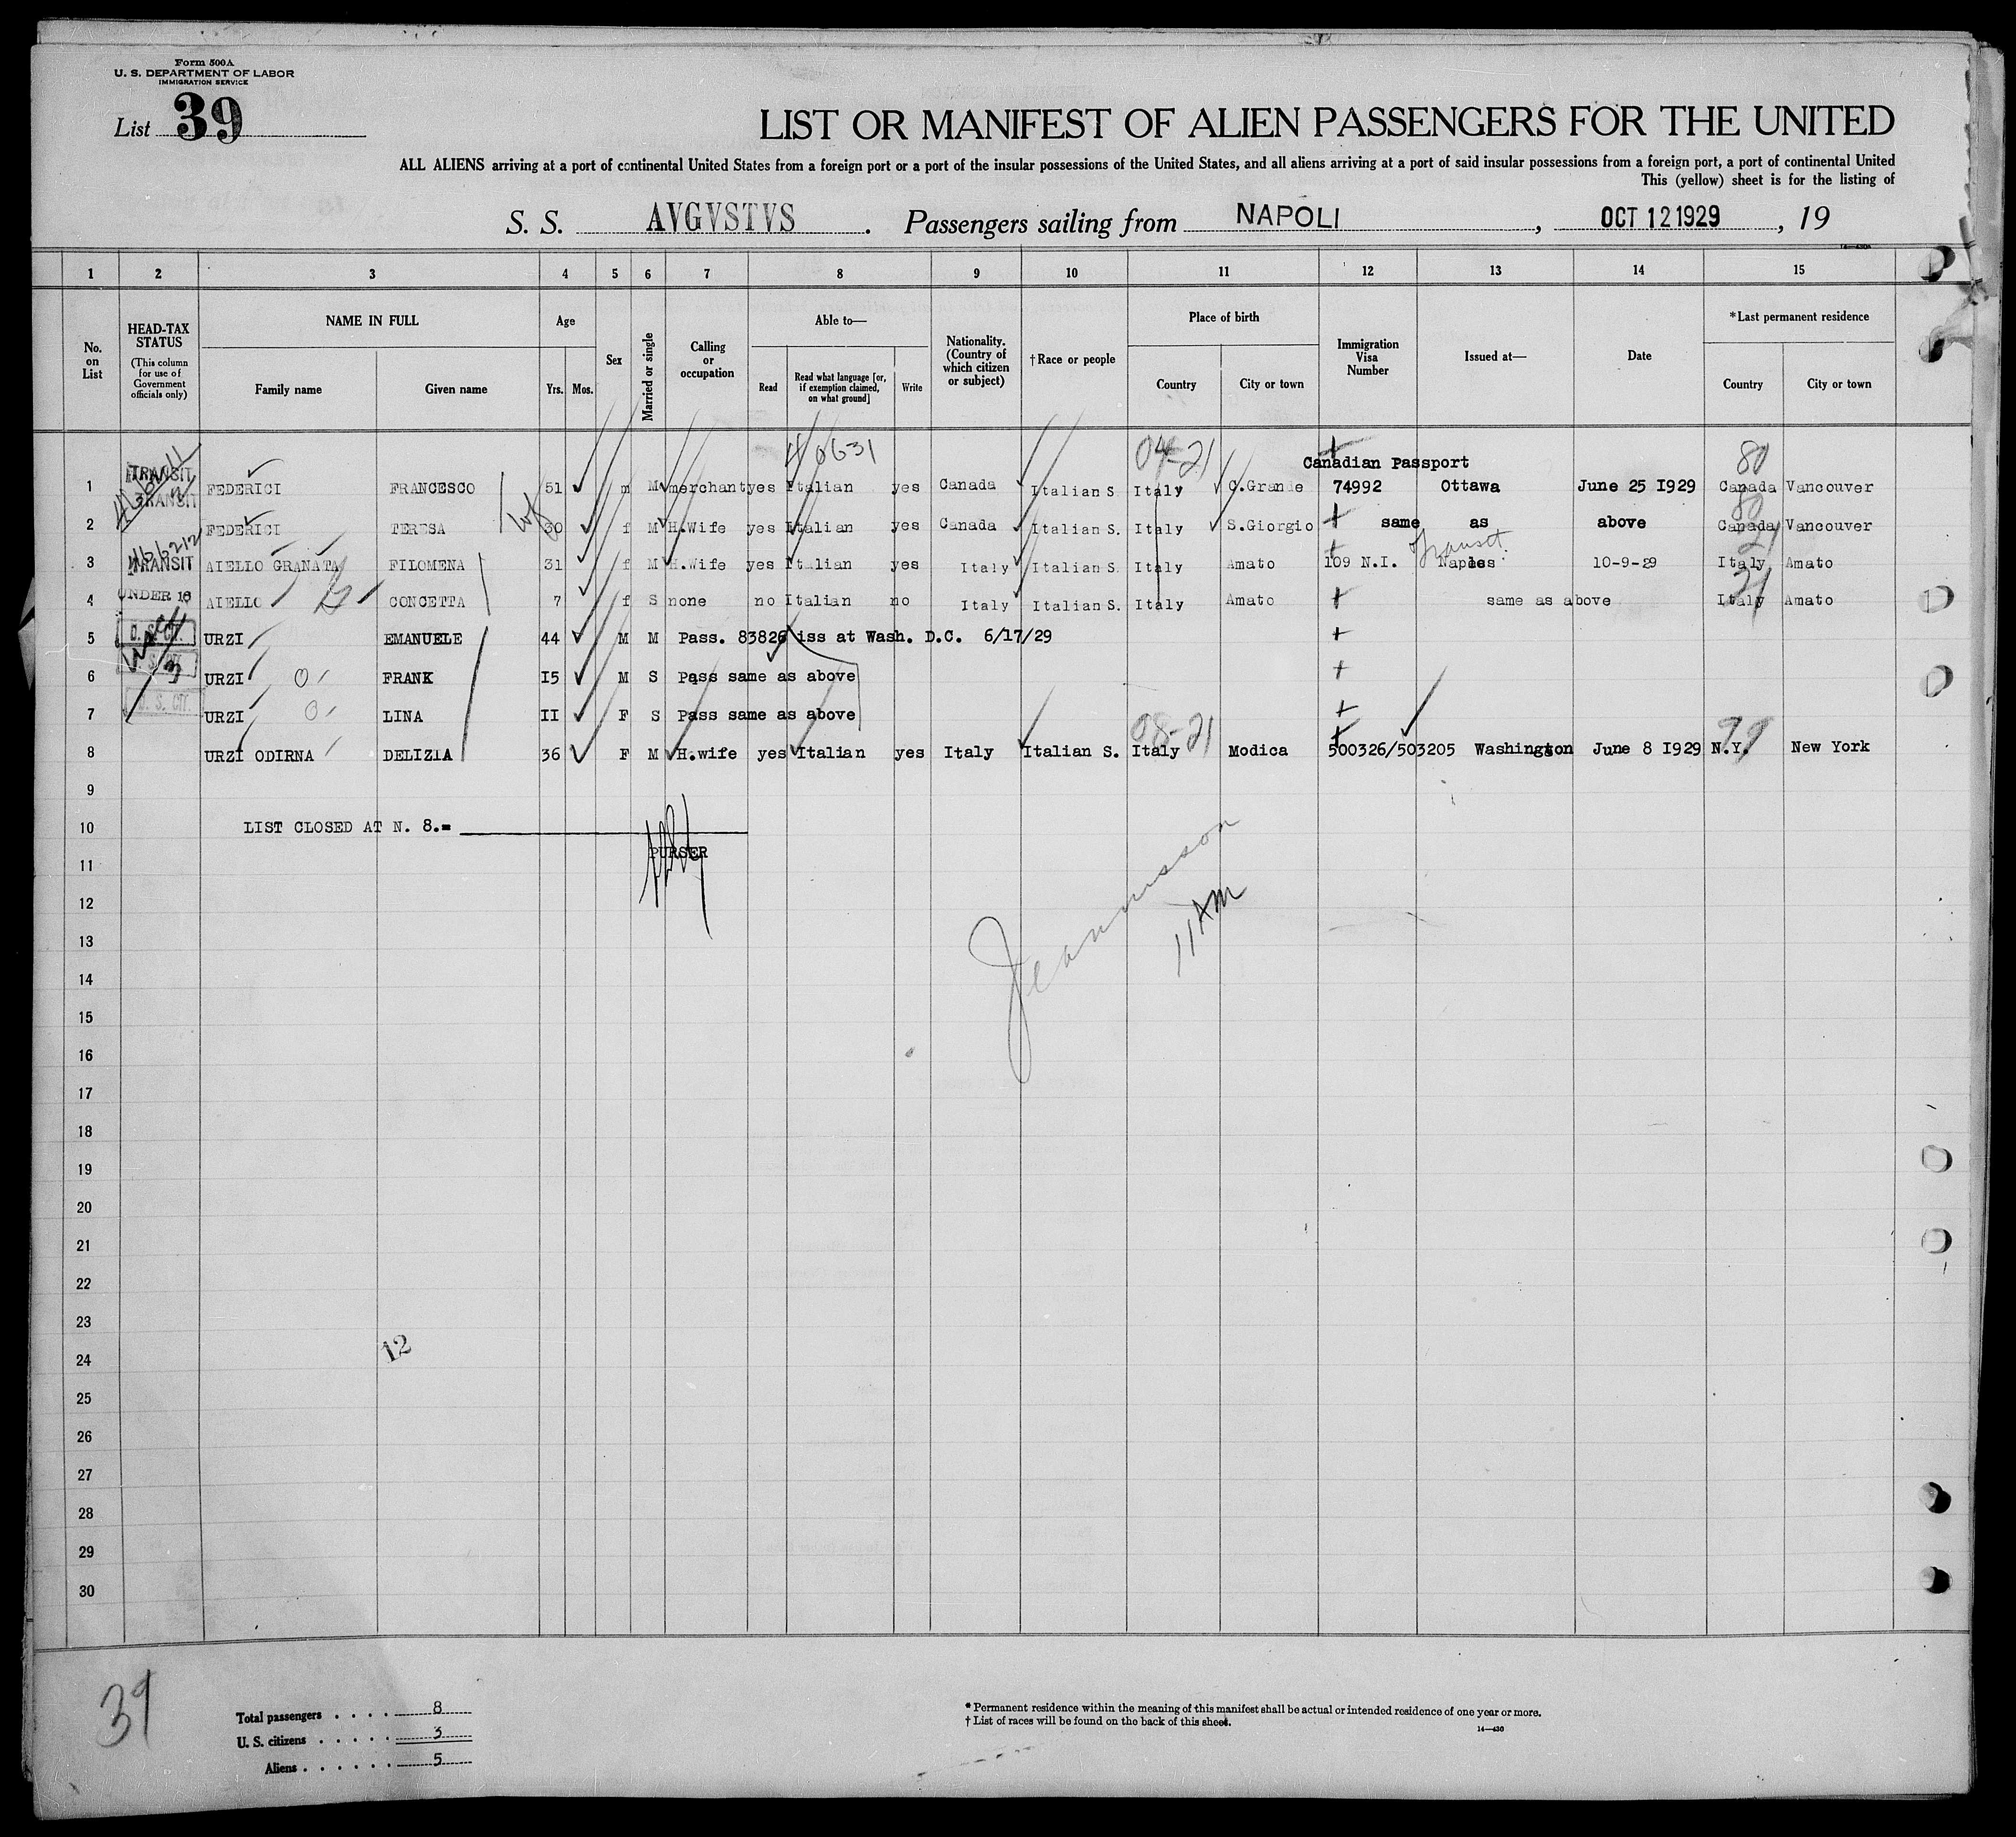 Form 500A
U. S. DEPARTMENT OF LABOR
IMMIGRATION SERVICE
List 39
LIST OR MANIFEST OF ALIEN PASSENGERS FOR THE UNITED
ALL ALIENS arriving at a port of continental United States from a foreign port or a port of the insular possessions of the United States, and all aliens arriving at a port of said insular possessions from a foreign port, a port of continental United
This (yellow) sheet is for the listing of
S. S. AVGVSTVS. Passengers sailing from NAPOLI, OCT 12 1929, 19
1 2 3 4 5 6 7 8 9 10 11 12 13 14 15
No. on List
HEAD-TAX STATUS
(This column for use of Government officials only)
NAME IN FULL
Family name Given name
Age
Yrs. Mos.
Sex
Married or single
Calling or occupation
Able to—
Read
Read what language [or, if exemption claimed, on what ground]
Write
Nationality. (Country of which citizen or subject)
†Race or people
Place of birth
Country City or town
Immigration Visa Number
Issued at—
Date
*Last permanent residence
Country City or town
04-21 80
Canadian Passport
1 TRANSIT FEDERICI FRANCESCO 51 m M merchant yes Italian yes Canada Italian S Italy C.Grande 74992 Ottawa June 25 I929 Canada Vancouver
80
2 FEDERICI TERESA wf 30 f M H.Wife yes Italian yes Canada Italian S. Italy S.Giorgio same as above Canada Vancouver
Transit 21
3 TRANSIT AIELLO GRANATA FILOMENA 31 f M H.Wife yes Italian yes Italy Italian S. Italy Amato 109 N.I. Naples 10-9-29 Italy Amato
21
4 UNDER 16 AIELLO CONCETTA 7 f S none no Italian no Italy Italian S. Italy Amato same as above Italy Amato
5 U. S. CIT. URZI EMANUELE 44 M M Pass. 83826 iss at Wash. D.C. 6/17/29
6 U. S. CIT. URZI FRANK I5 M S Pass same as above
7 U. S. CIT. URZI LINA II F S Pass same as above
08-21 99
8 URZI ODIRNA DELIZIA 36 F M H.wife yes Italian yes Italy Italian S. Italy Modica 500326/503205 Washington June 8 I929 N.Y. New York
9
10 LIST CLOSED AT N. 8.=
PURSER
11
12
11 AM
13
14
15
16
17
18
19
20
21
22
23
12
24
25
26
27
28
29
30
39
Total passengers . . . . 8
U. S. citizens . . . . . 3
Aliens . . . . . . 5
* Permanent residence within the meaning of this manifest shall be actual or intended residence of one year or more.
† List of races will be found on the back of this sheet.
14—430